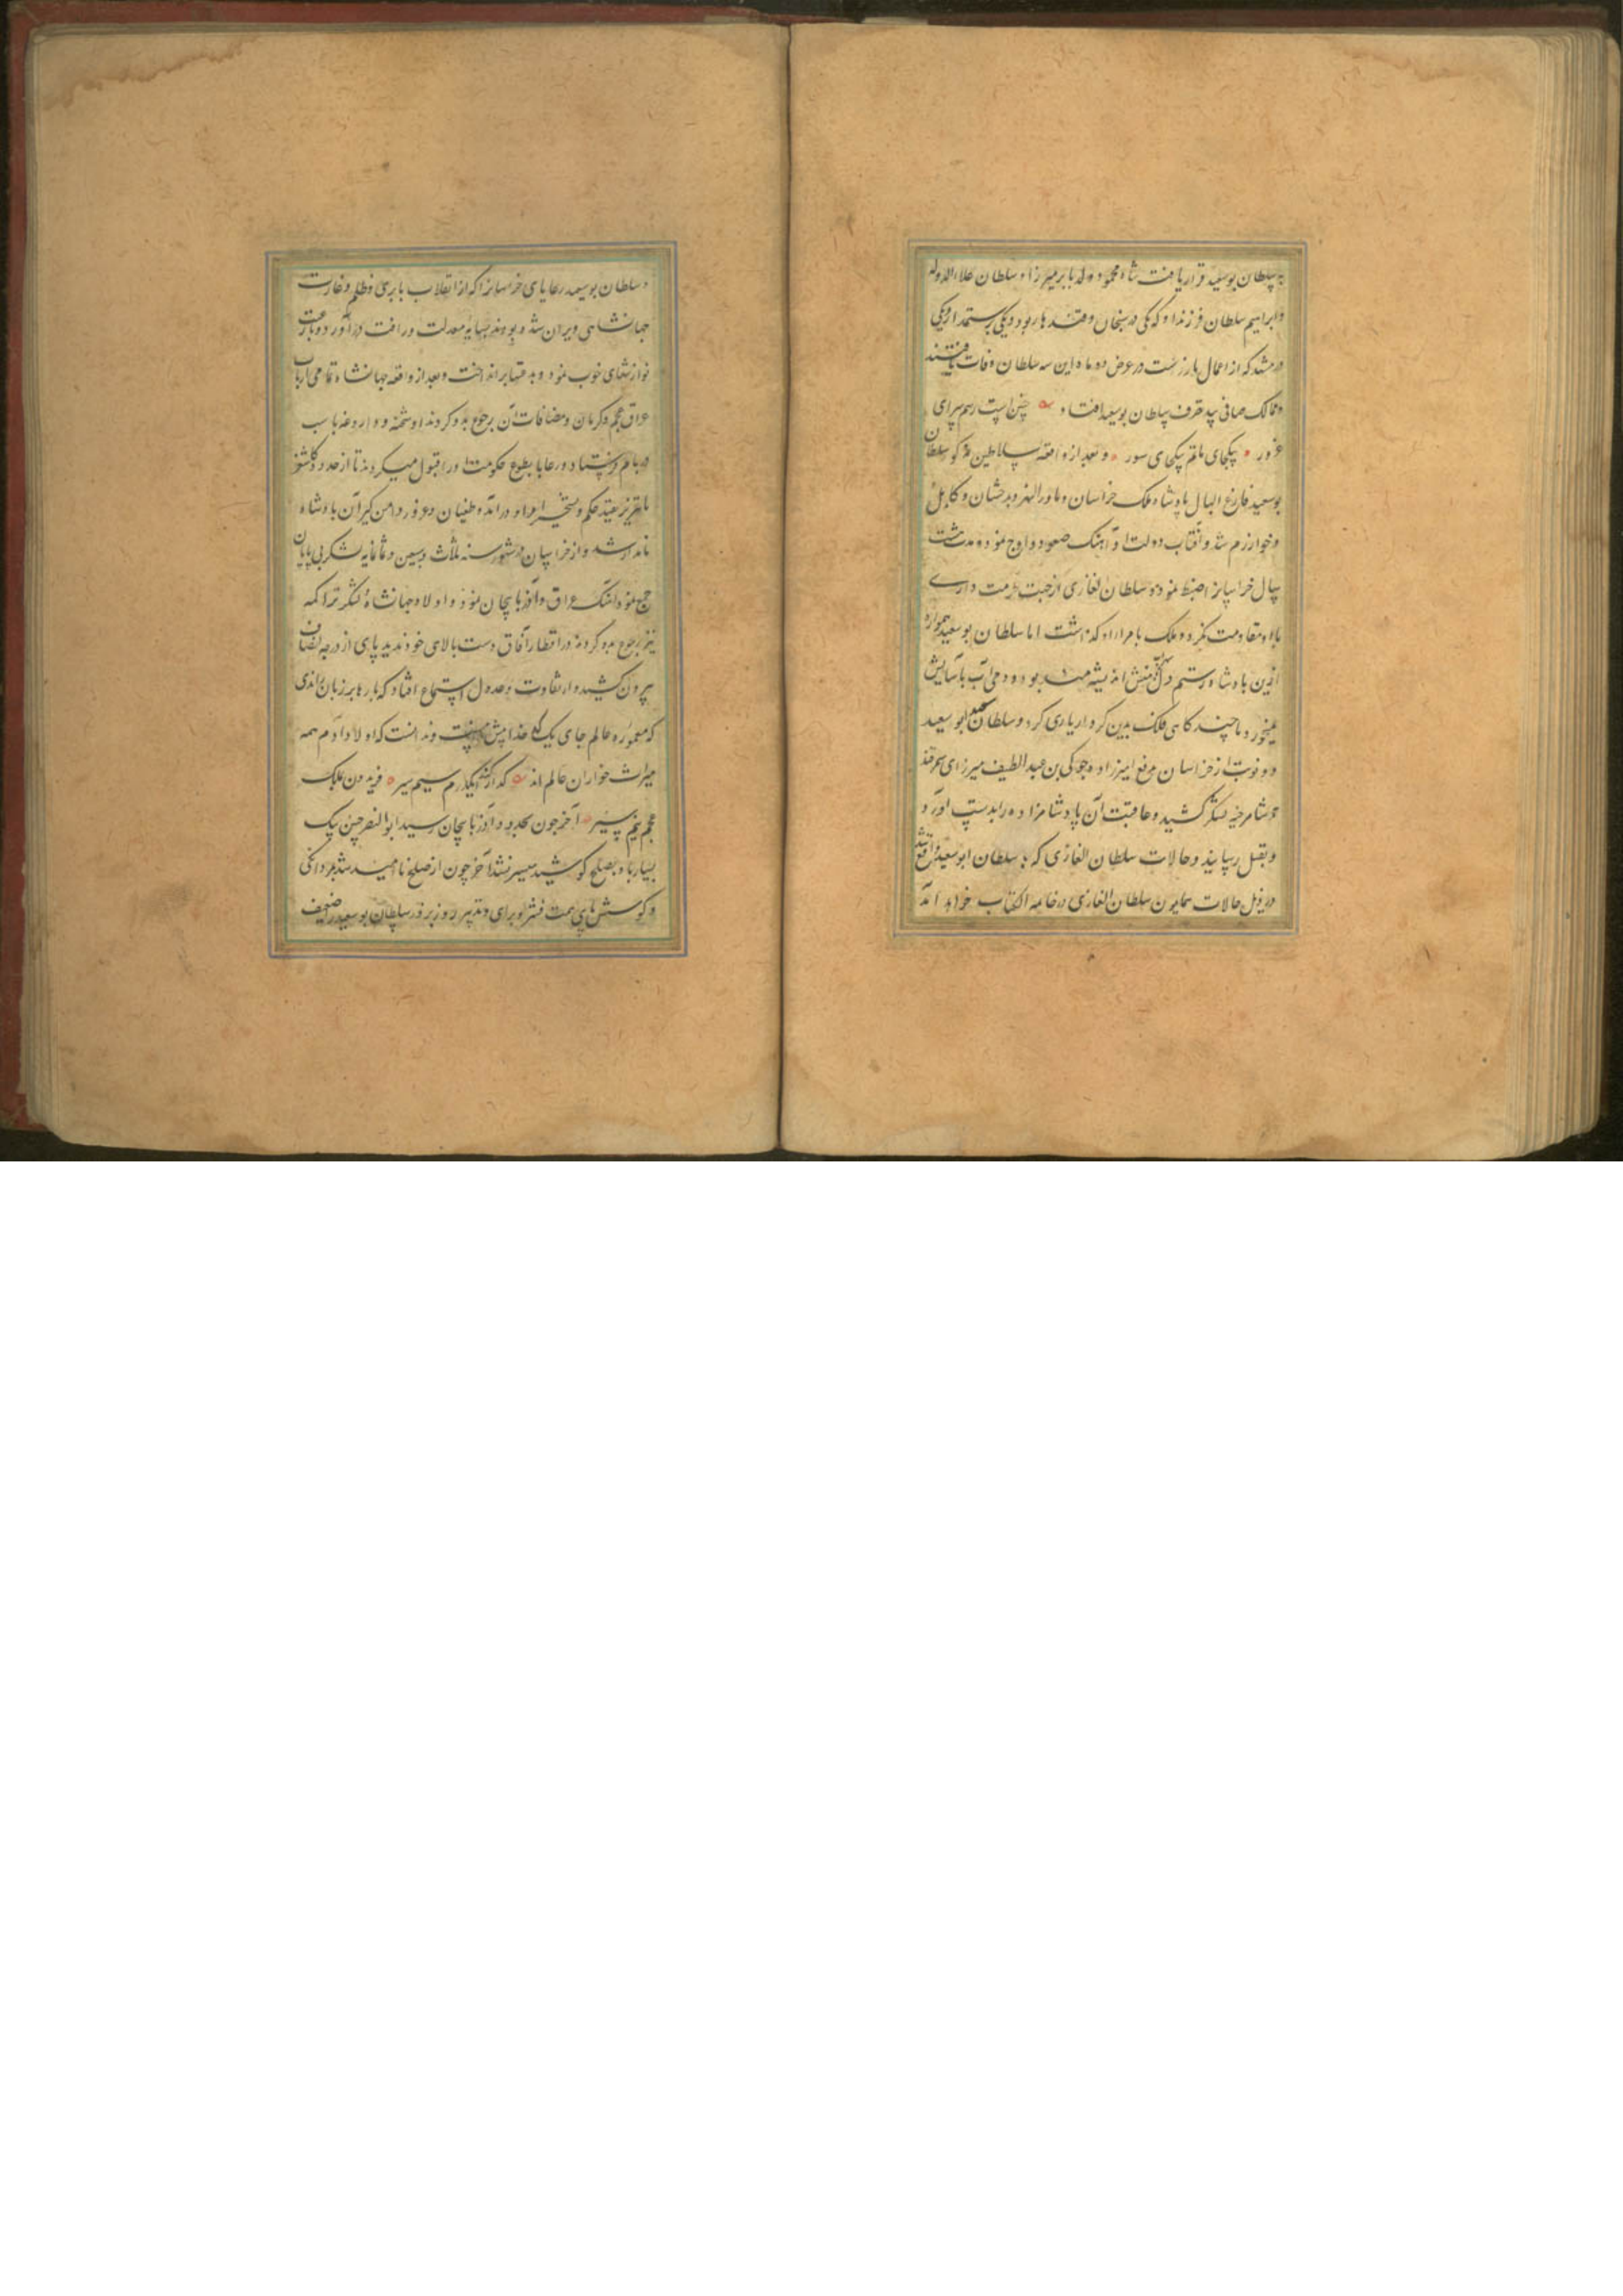 به سلطان بوسعید قرار یافت شاه محمود ولد بابر میرزا و سلطان علاءالدوله
و ابراهیم سلطان فرزند او که یکی در و قندهار بود و یکی
در مشهد که از اعمال در عرض دو ماه این سه سلطان وفات یافتند
و ممالک صافی بید تصرف سلطان بوسعید افتاد چنین است رسم سرای
غرور یکجای ماتم یکجای سور و بعد از واقعه سلاطین مذکور سلطان
بوسعید فارغ البال پادشاه ملک خراسان و ماورالنهر و بدخشان و کابل
و خوارزم شد و آفتاب دولت او آهنک صعود و اوج نمود و مدت هشت
سال خراسانرا ضبط نمود و سلطان الغازی از جهت حرمت داری
با او مقاومت نکرد و ملک بامرا او کذاشت اما سلطان بوسعید همواره
ازین پادشاه رستم دل اندیشه مند بود و می آب بآسایش
میخورد تا چند کاهی فلک بدین کردار یاری کرد و سلطان ابو سعید
دو نوبت از خراسان برفع امیرزاده جوکی بن عبد الطیف میرزای سمرقند
و شاهرخیه لشکر کشید و عاقبت آن پادشاهزاده را بدست آورد
و بقتل رسانید و حالات سلطان الغازی که با سلطان ابوسعید واقع شد
در ذیل حالات همایون سلطان الغازی در خاتمه الکتاب خواهد آمد
و سلطان بوسعید رعایای خراسانرا که از انقلاب بابری و ظلم و غارت
جهانشاهی ویران شده بودند بسایه معدلت و رافت درآورد و باز رعیت
نوازشهای خوب نمود و بدعتها برانداخت و بعد از واقعه جهانشاه تمامی ارباب
عراق عجم و کرمان و مضافات آن رجوع بدو کردند او شحنه و داروغه با سب
و بام و رعایا بطوع حکومت او را قبول میکردند تا از حدود کاشغر
تا تبریز حکم و تسخیر او در آمد و طغیان و غرور دامن کیر آن پادشاه
نامدار شد و از خراسان در شهور سنه ثلاث و سبعین و ثمانمایه لشکر بی پایان
جمع نمود و آهنک عراق و آذربایجان نمود و اولاد جهانشاه و لشکر تراکمه
نیز رجوع بدو کردند در اقطار آفاق دست بالای خود ندید پای از درجه انصاف
بیرون کشید و از تفاوت و عدول استماع افتاد که بارها بر زبان راندی
که معموره عالم جای یک کدخدا بیش نیست و ندانست که اولاد آدم همه
میراث خواران عالم اند کدا را کند یکدرم سیم سیر فریدون بملک
عجم نیم سیر آخر چون بحدود آذربایجان رسید ابو النصر حسن بیک
بسیار با او بصلح کوشید میسر نشد آخر چون از صلح ناامید شد بمردانکی
و کوشش پای همت فشرد و برای و تدبیر روز بروز سلطان بوسعید را ضعیف